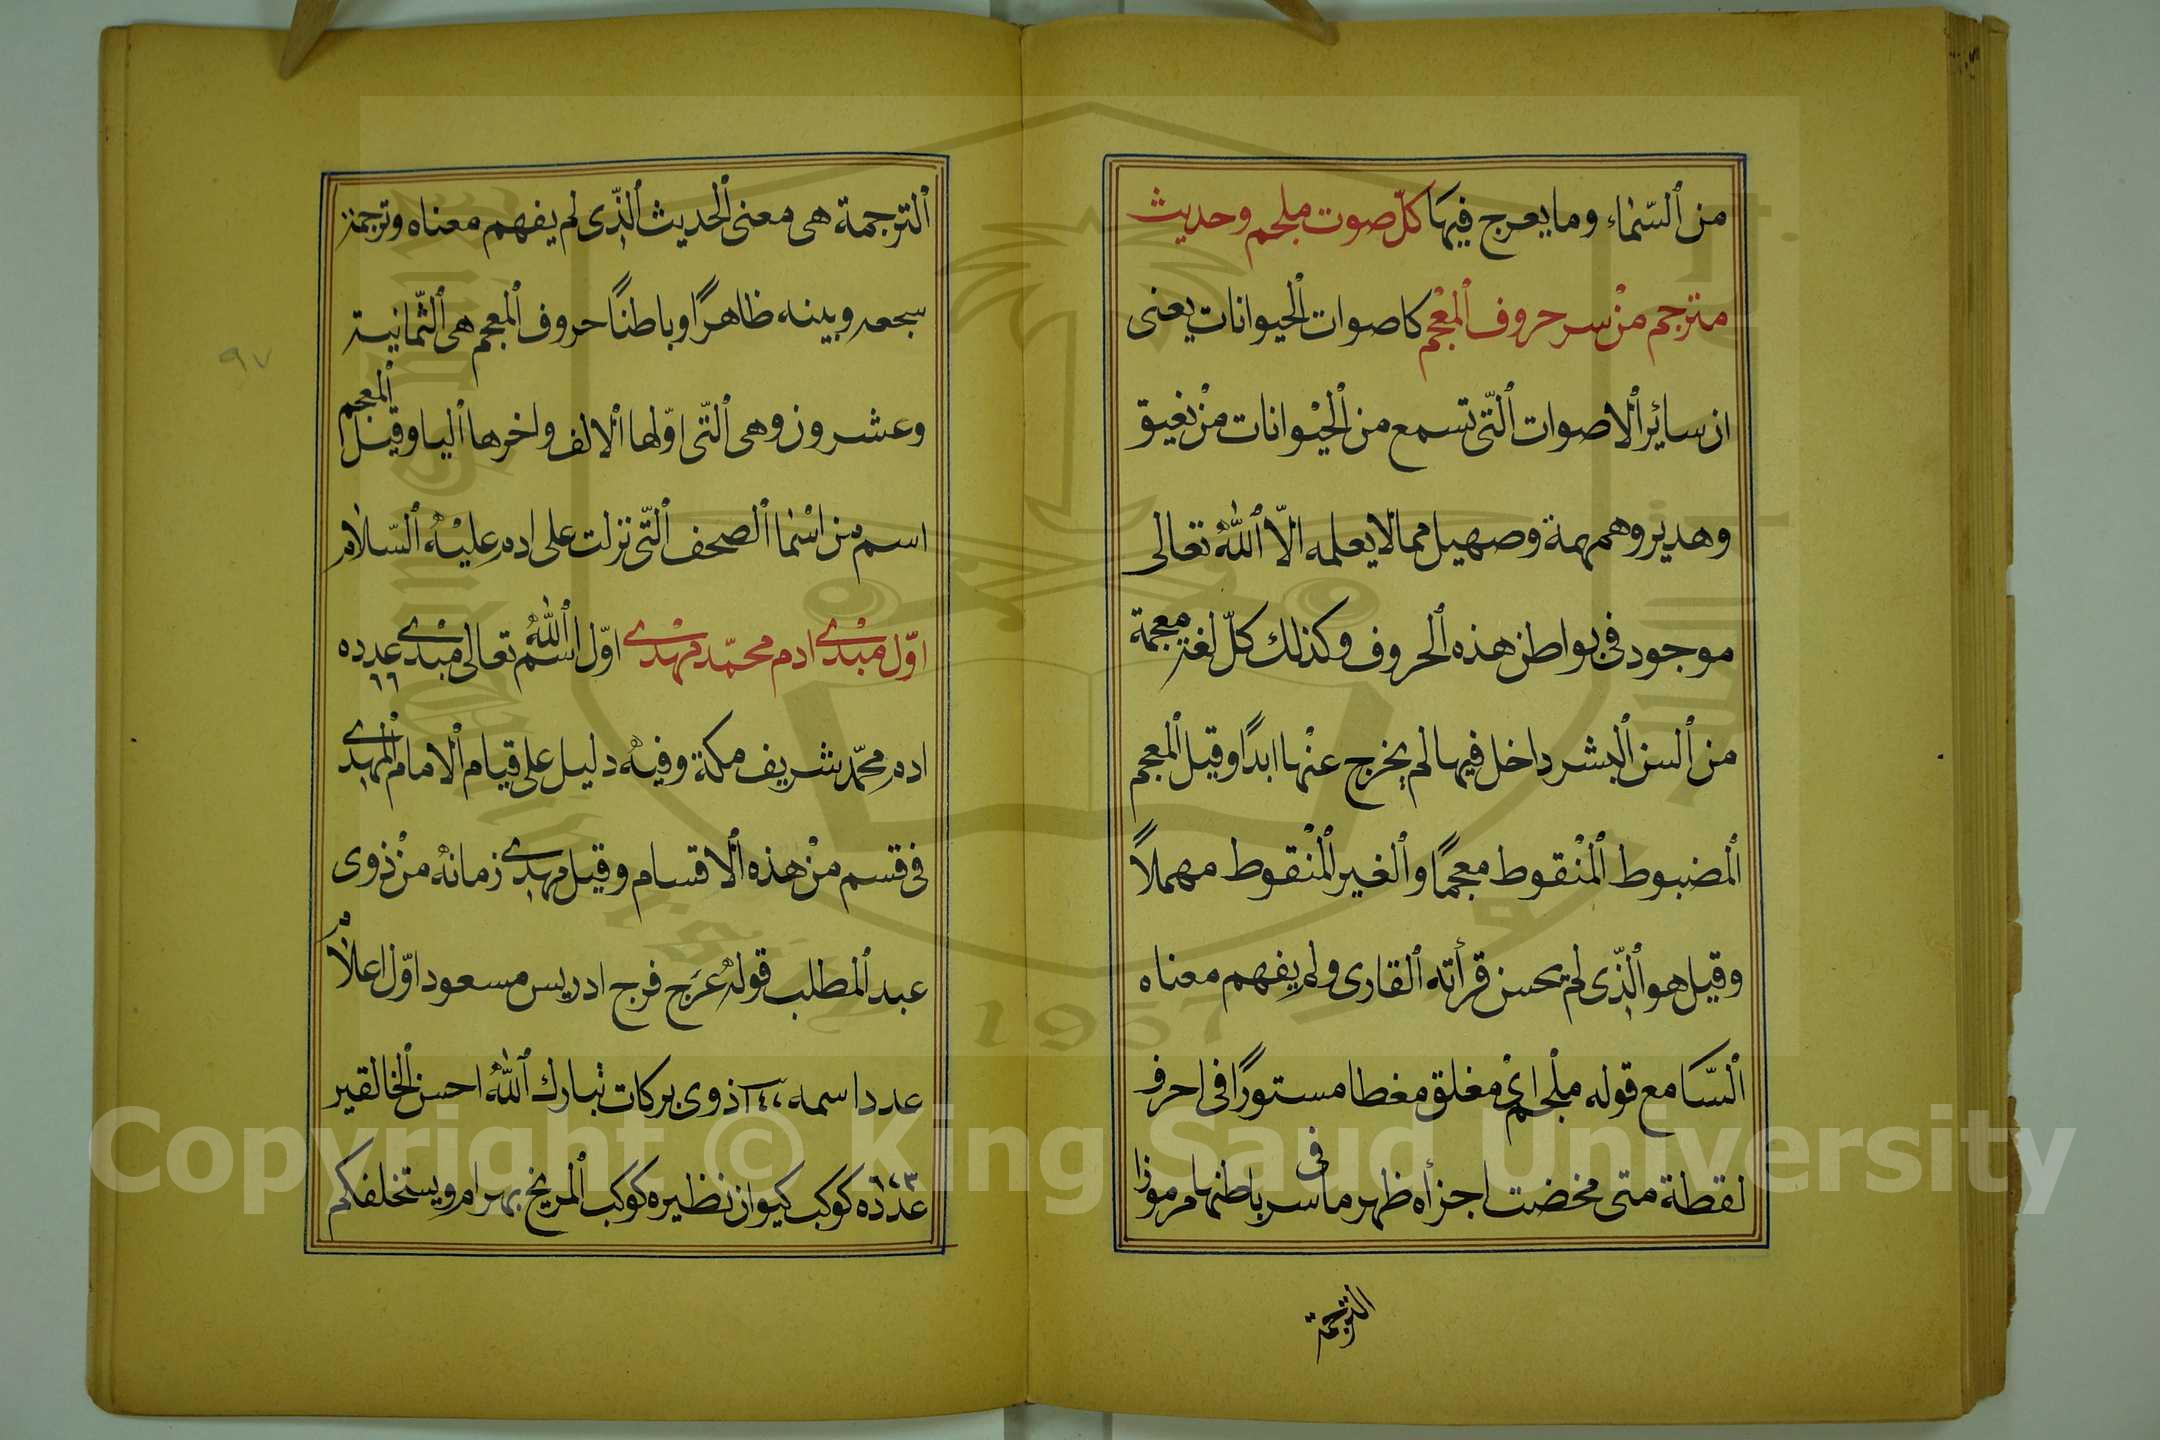 من السماء وما يعرج فيها كلّ صوت ملجم وحديث
مترجم من سر حروف المعجم كاصوات الحيوانات يعنى
ان سائر الاصوات التّى تسمع من الحيوانات من نغيق
وهدير وهمهمة وصهيل مما لا يعلمه الّا الله تعالى
موجود فى بواطن هذه الحروف وكذلك كلّ لغة معجمة
من السن البشر داخل فيها لم يخرج عنها ابدًا وقيل المعجم
المضبوط المنقوط معجمًا والغير المنقوط مهملاً
وقيل هو الذّى لم تحسن قرأته القارى ولم يفهم معناه
السّامع قوله ملجم اىْ مغلق مغطا مستورًا فى احرف
لقطة متى مخضت اجزأه ظهر ما فى سر باطنها مرموزا
الترجمة
الترجمة هى معنى الحديث الذّى لم يفهم معناه وترجمة
سجعه وبينه ظاهرًا وباطنًا حروف المعجم هى الثّمانية
وعشرون وهى التّى اوّلها الالف واخرها اليا وقيل المعجم
اسم من اسما الصحف التّى نزلت على ادم عليه السّلام
اوّل مبدى ادم محمّد مهدى اوّل اسم الله تعالى مبدى عدده
٦٦
ادم محمّد شريف مكة وفيه دليل على قيام الامام المهدى
فى قسم من هذه الاقسام وقيل مهدى زمانه من ذوى
عبد المطلب قوله عرج فرج ادريس مسعود اوّل اعلام
عدد اسمه ذوى بركات تبارك الله احسن الخالقين
عدده كوكب كيوان نظيره كوكب المريخ بهرام ويستخلفكم
٩٧
Copyright © King Saud University
1957